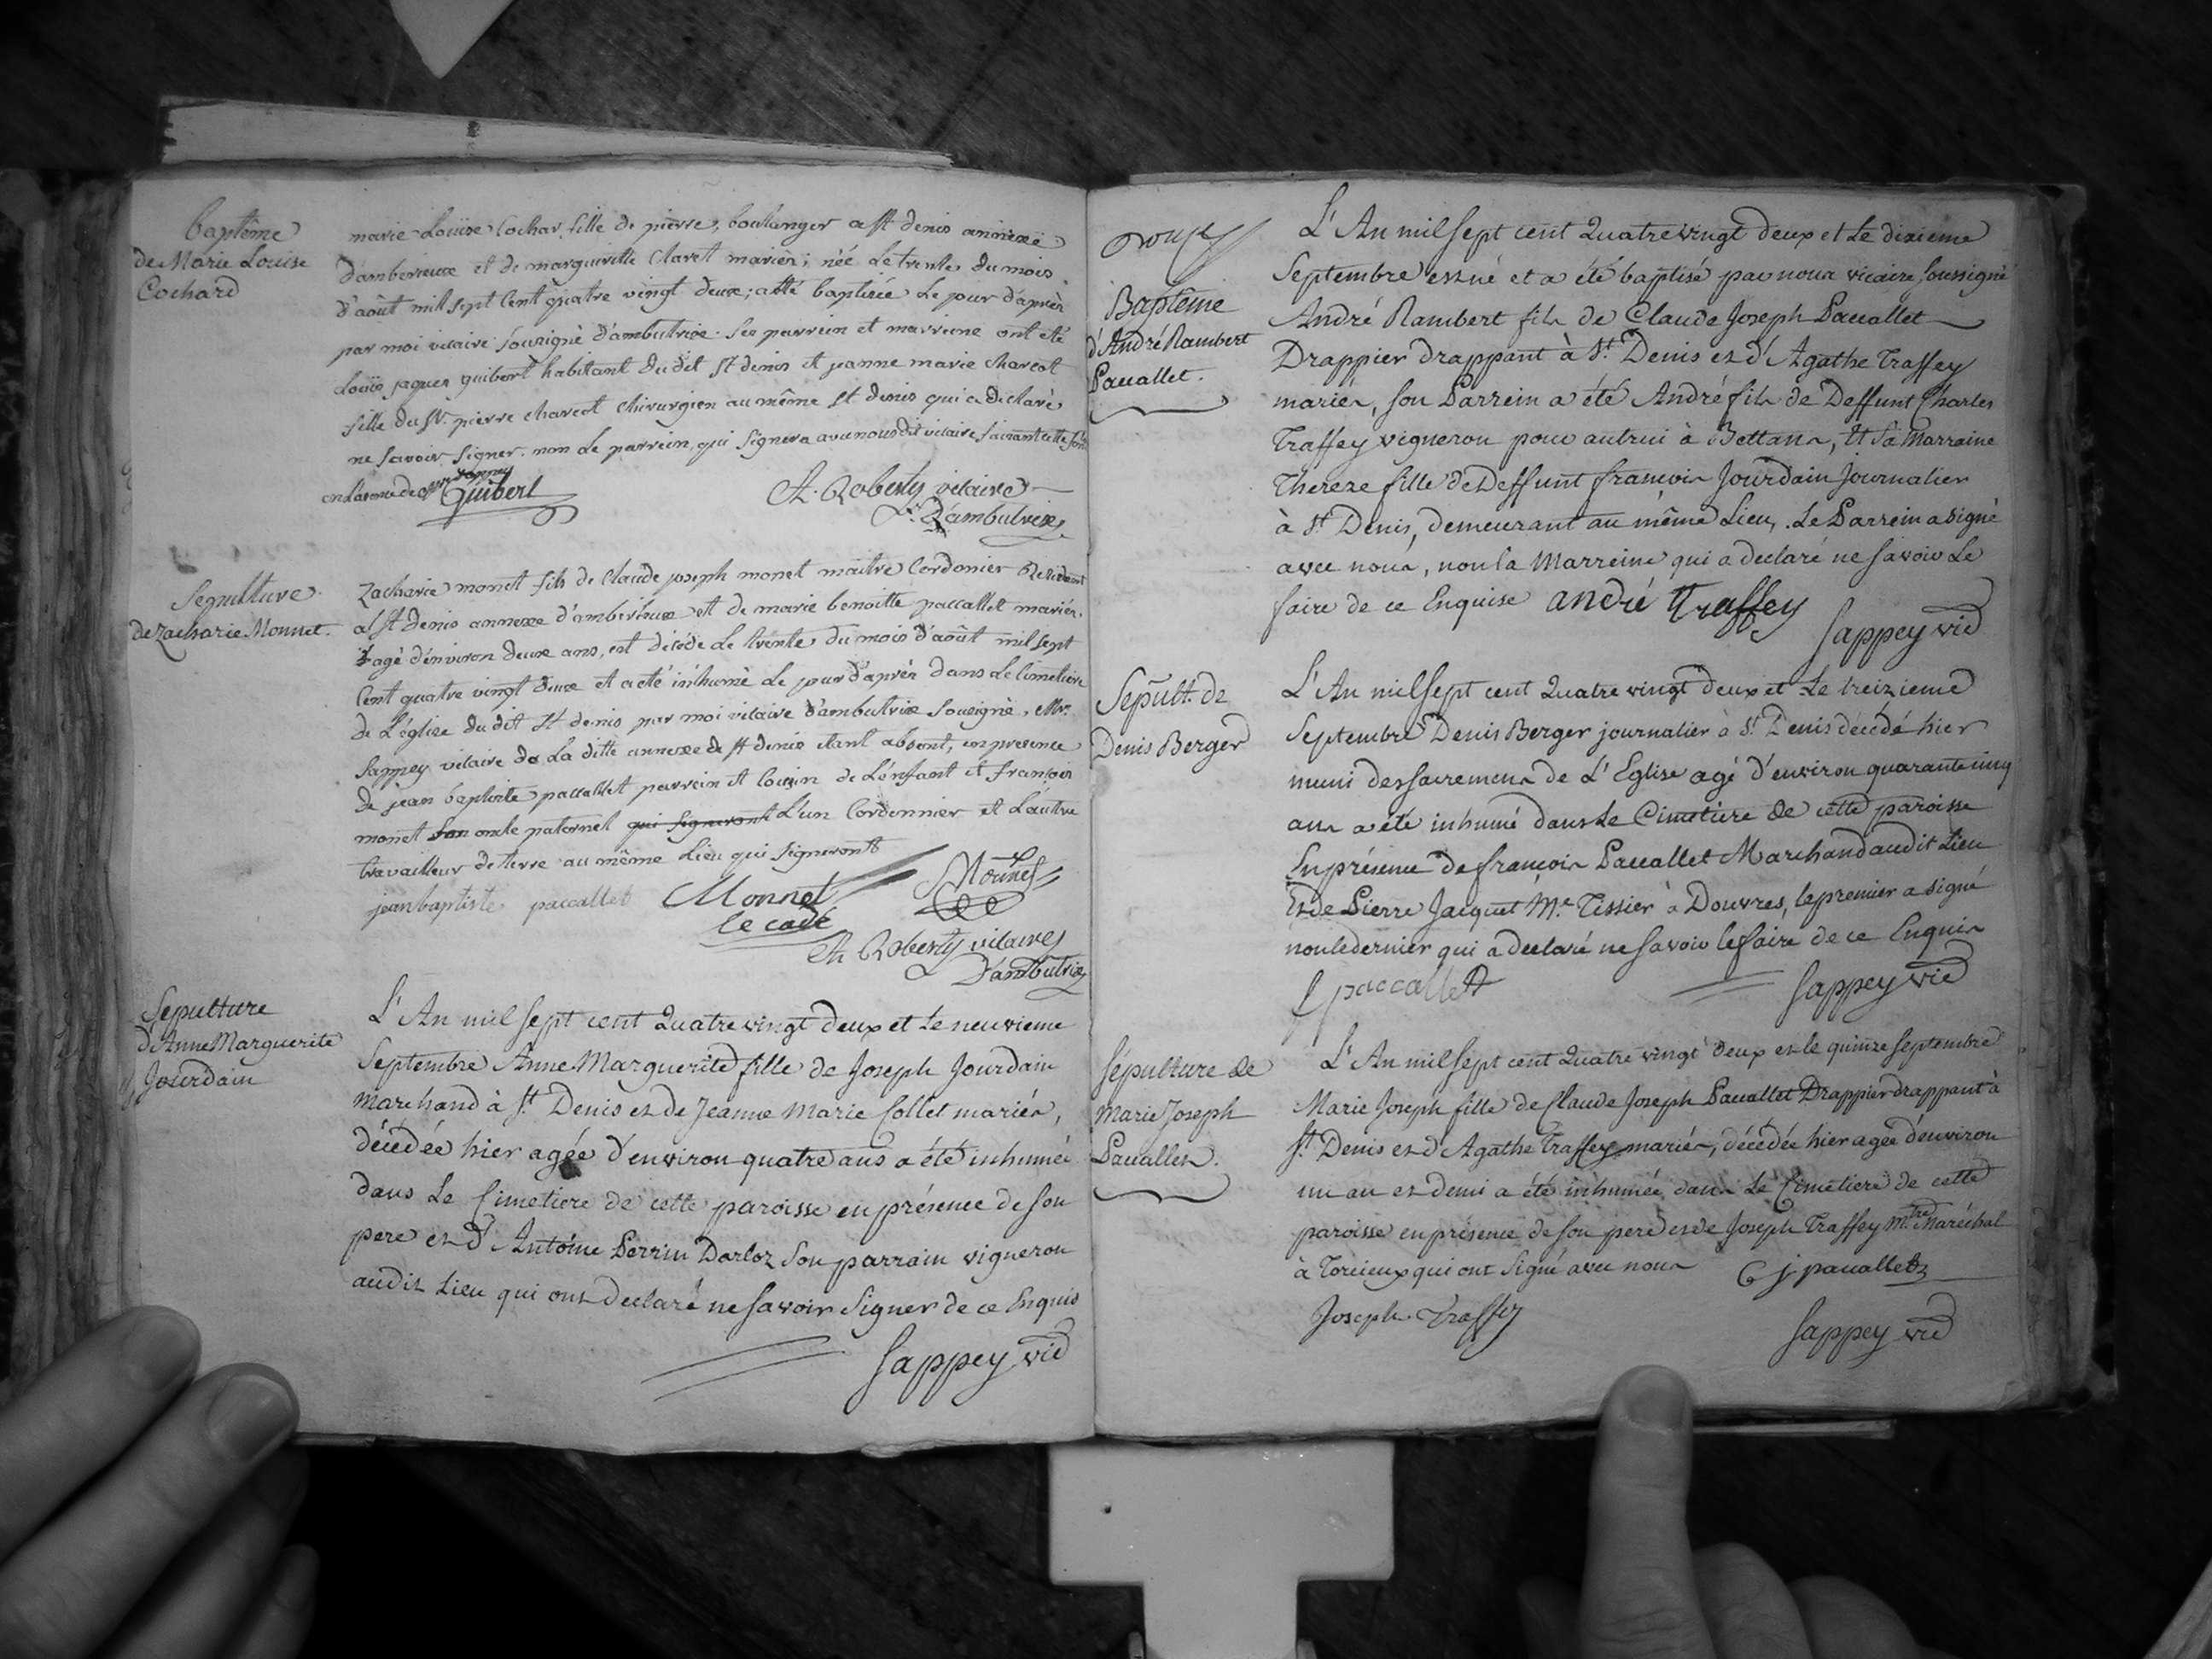 baptême
de Marie Louise
Cochard
marie Louise Cochar fille de pierre, boulanger a st denis annexe
d'amberieux et de margueritte Claret mariés; née le trente du mois
d'août mil sept cent quatre vingt deux; a été baptisée le jour d'après
par moi vicaire sousigné d'ambutrix. Ses parrein et marreine ont été
Louis jaques guibert habitant du dit st denis et jeanne marie charcot
fille du Sr. pierre charcot chirurgien au même st denis qui a declaré
ne savoir signer. non le parrein, qui signera avec nous dit vicaire
Guibert
A. Roberty vicaire
D'ambutrix
Sépulture
de Zacharie Monnet.
Zacharie monet fils de Claude joseph monet maître Cordonier Residant
a st denis annexe d'amberieux et de marie benoitte paccallet mariés,
agé d'environ deux ans, est décédé le trente du mois d'août mil sept
cent quatre vingt deux et a été inhumé le jour d'après dans le cimetiere
de L'église du dit st denis par moi vicaire d'ambutrix sousigné, Mr.
Sappey vicaire de La ditte annexe de st denis etant absent, en presence
de jean baptiste paccallet parrein et cousin de L'enfant et françois
monet son oncle paternel qui signeront L'un Cordonnier et L'autre
travailleur de terre au même Lieu qui signeront
jean baptiste paccallet Monnet Monnet
le cade
A Roberty vicaire
D'ambutrix
Sepulture
d'Anne Marguerite
Jourdain
L'An mil sept cent Quatre vingt deux et Le neuvieme
Septembre Anne Marguerite fille de Joseph Jourdain
marchand à St. Denis et de Jeanne Marie Collet mariés,
décédée hier agée d'environ quatre ans a été inhumée
dans Le Cimetiere de cette paroisse en présence de son
pere et d'Antoine Perrin Darloz son parrain vigneron
audit Lieu qui ont declaré ne savoir signer de ce Enquis
Sappey vic
Baptême
d'André Rambert
Paccallet.
L'An mil sept cent Quatre vingt deux et Le dixieme
Septembre est né et a été baptisé par nous vicaire soussigné
André Rambert fils de Claude Joseph Paccallet
Drappier drappant à St. Denis et d'Agathe Traffey
mariés, son Parrein a été André fils de Deffunt Charles
Traffey vigneron pour autrui à Bettans, et sa Marraine
Thereze fille de Deffunt françois Jourdain Journalier
à St Denis, demeurant au même Lieu, Le Parrein a signé
avec nous, non la Marreine qui a declaré ne savoir Le
faire de ce Enquise andré Traffey
Sappey vic
Sepult. de
Denis Berger
L'An mil sept cent Quatre vingt deux et Le treizieme
Septembre Denis Berger journalier à St. Denis décédé hier
muni des sacremens de L'Eglise agé d'environ quarante cinq
ans a été inhumé dans Le Cimetiere de cette paroisse
En présence de françois Paccallet Marchand audit Lieu
Et de Pierre Jacquet Me. Tissier à Douvres, le premier a signé
non le dernier qui a declaré ne savoir le faire de ce Enquis
f paccallet
Sappey vic
Sépulture de
Marie Joseph
Paccallet.
L'An mil sept cent Quatre vingt deux et le quinze septembre
Marie Joseph fille de Claude Joseph Paccallet Drappier drappant à
St. Denis et d'Agathe Traffey mariés, décédée hier agée d'environ
un an et demi a été inhumée dans Le Cimetiere de cette
paroisse en présence de son pere et de Joseph Traffey Mtre Maréchal
à Torcieux qui ont signé avec nous C j paccallet
Joseph Traffey
Sappey vic